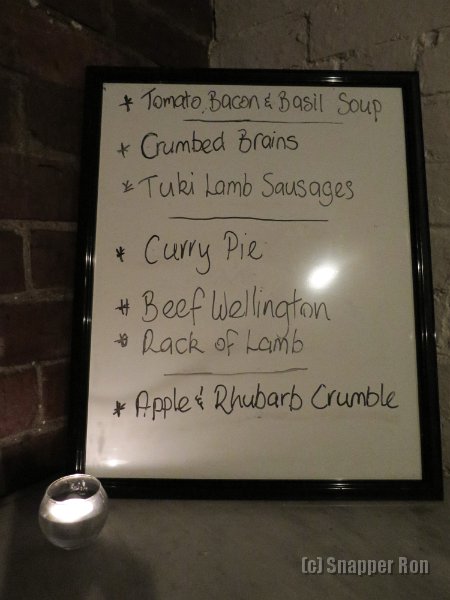 * Tomato, Bacon & Basil Soup
* Crumbed Brains
* Tuki Lamb Sausages
* Curry Pie
* Beef Wellington
* Rack of Lamb
* Apple & Rhubarb Crumble
(c) Snapper Ron